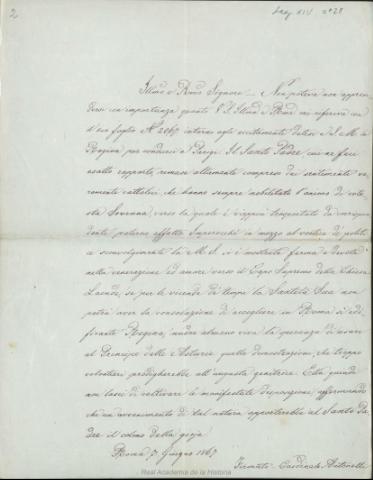 2
Leg. XIV nº 28
Illmo e Rmo Signore — Non poteva non appren-
dersi con importanza quanto V. S. Illma e Rma mi riferiva con
foglio Nº 2067 intorno agli eccitamenti S. M. la
Regina per condursi a Parigi. Il Santo Padre, cui ne feci
esatto rapporto, rimase altamente compreso dai sentimenti ve-
ramente cattolici, che hanno sempre nobilitato l'animo di cote-
sta Sovrana, verso la quale è eziandio da corrispon-
dente paterno affetto. Imperocchè in mezzo al vortice di politi-
ci sconvolgimenti la M. S. si è mostrata ferma e devota
nella venerazione ed amore verso il Capo Supremo della Chiesa.
Laonde, se per le vicende di tempi la Santità Sua non
potrà aver la consolazione di accogliere in Roma sì edi-
ficante Regina, nudre almeno viva la speranza di usare
al Principe delle Asturie quelle dimostrazioni, che troppo
volentieri prodigherebbe all'augusta genitrice. Ella quindi
non lasci di coltivare le manifestate disposizioni affermando
che un avvenimento di tal natura apporterebbe al Santo Pa-
dre il colmo della gioja.
Roma 7 Giugno 1867
Firmato - Cardinale Antonelli
Real Academia de la Historia